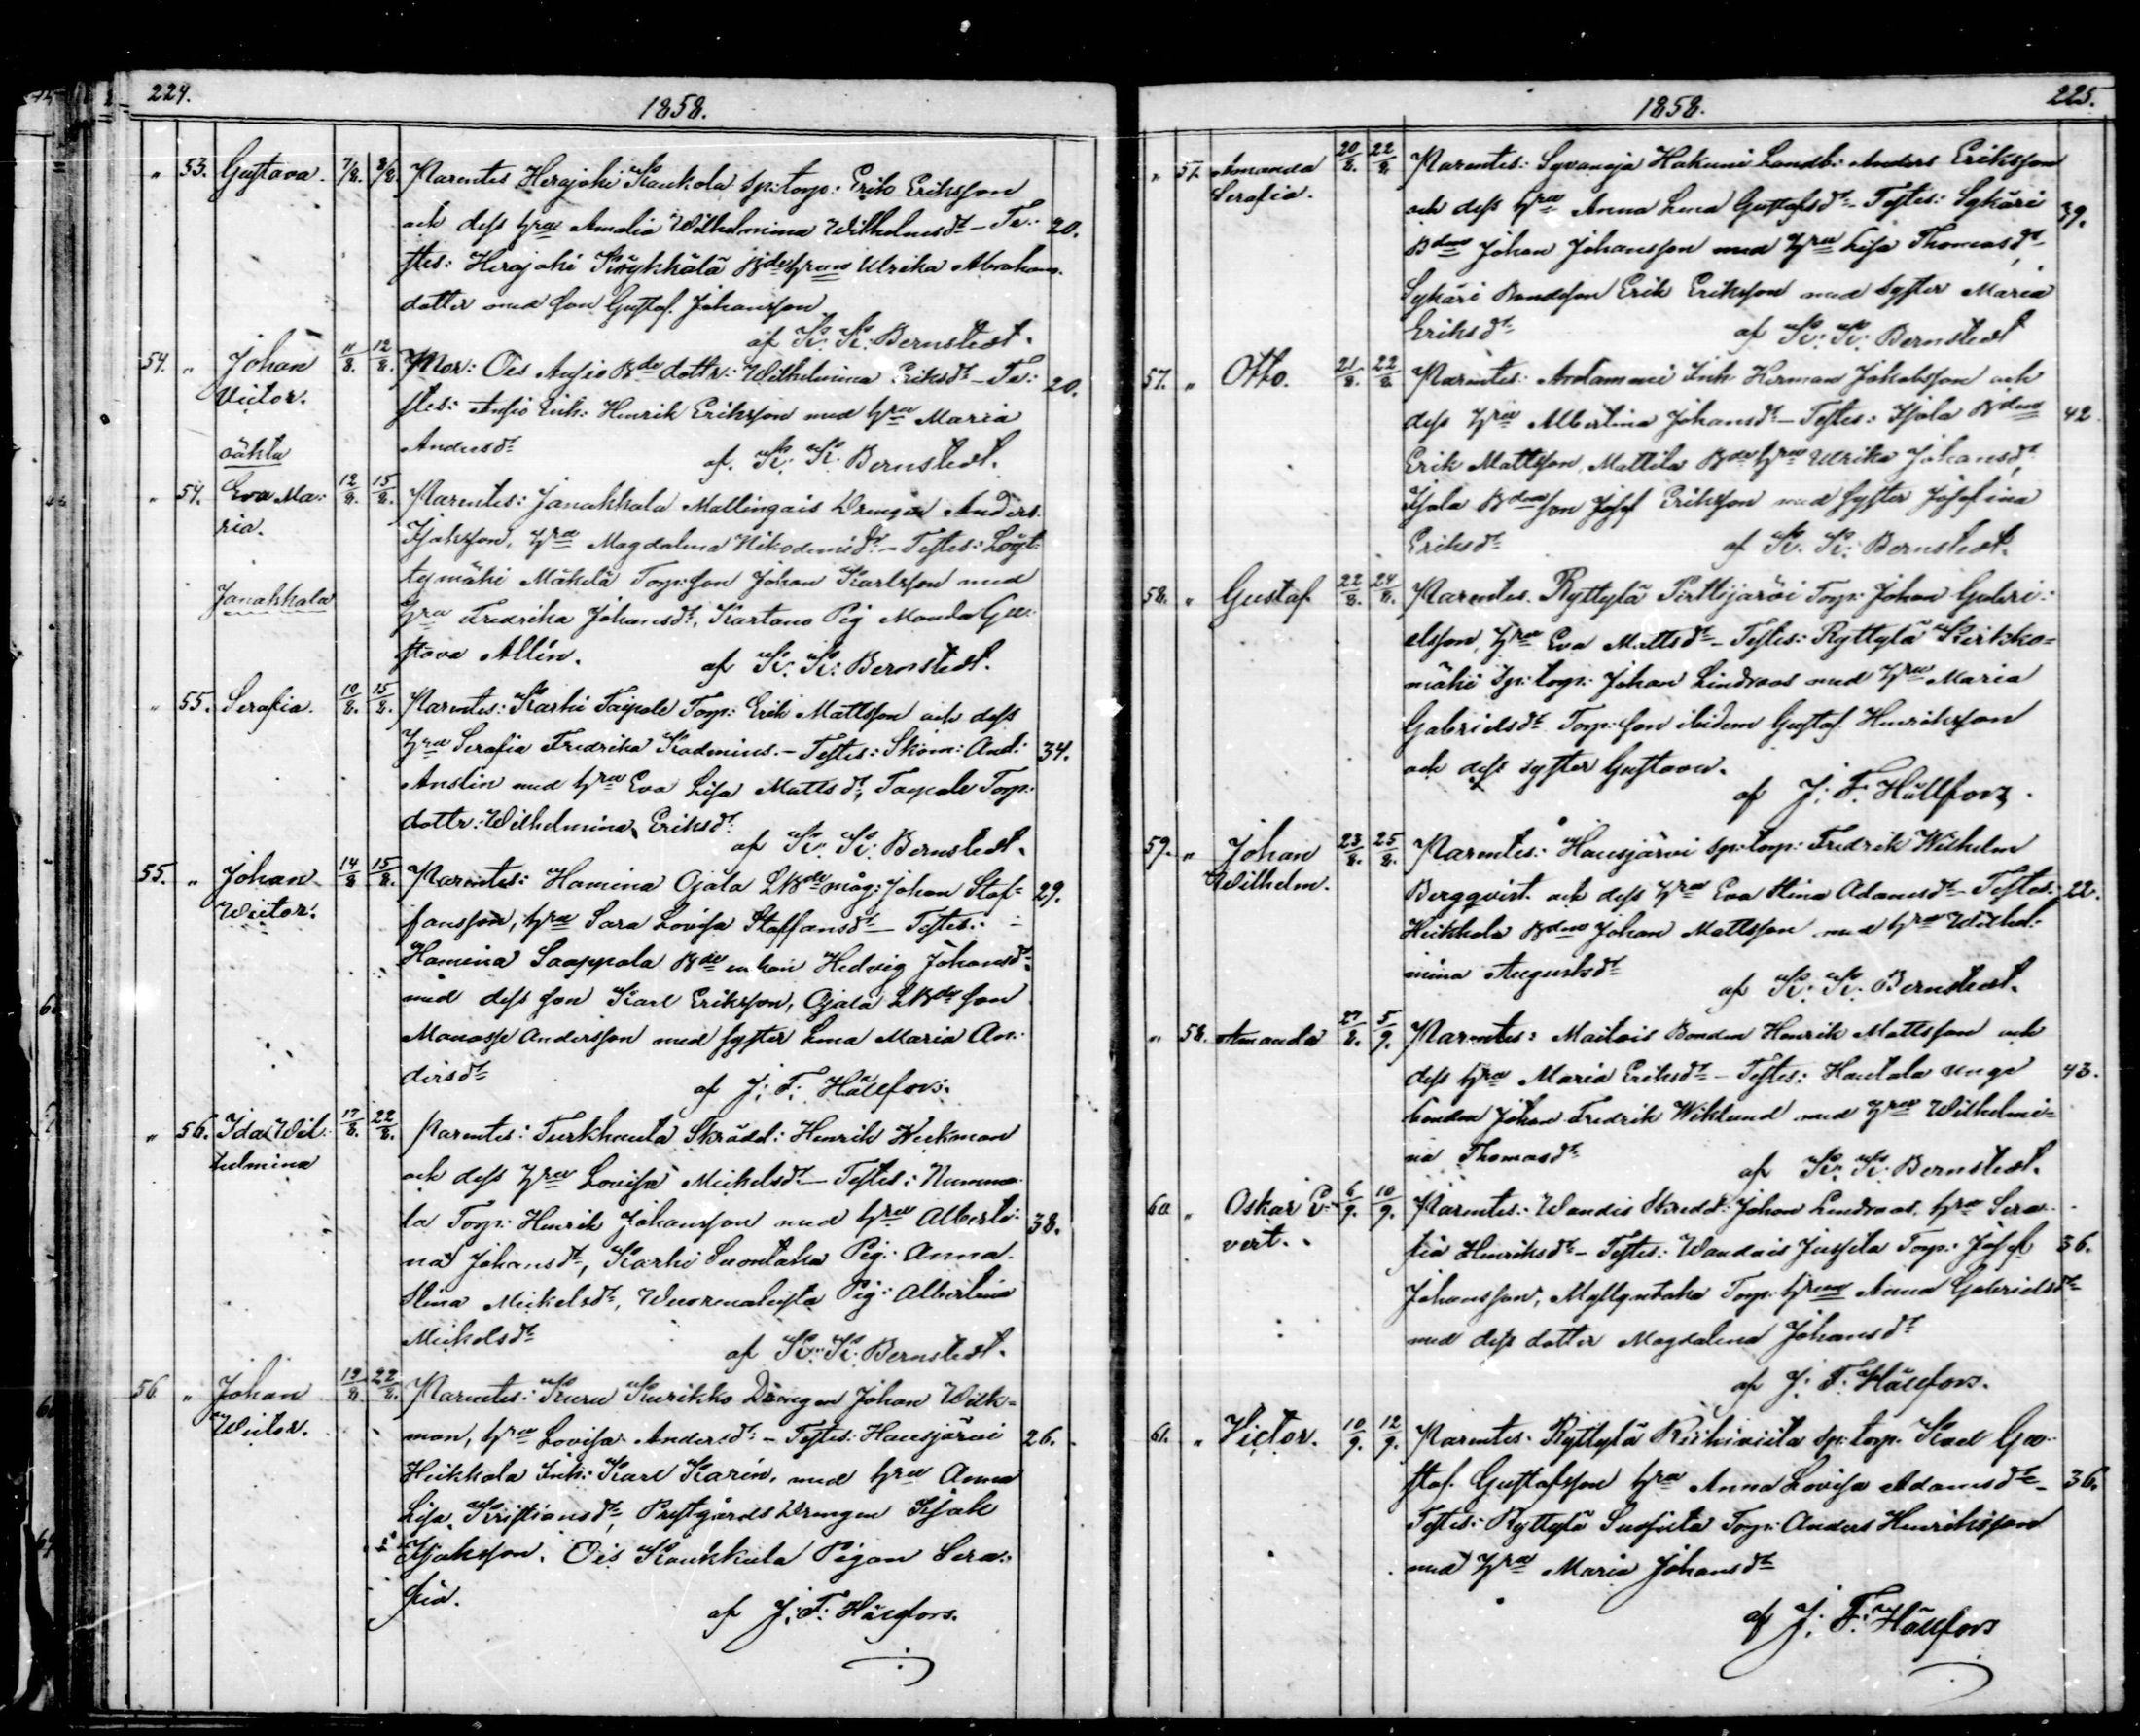 224.
1858.
" 53. Gustava. 7/8. 8/8. Parentes Herajoki Kaukola sp:torp: Erik Eriksson
och dess hru Amalia Wilhelmina Wilhelmsdr – Te: 20.
stes: Herajoki Bdehrun Ulrika Abrahams
dotter med son Gustaf Johansson
af K: K: Bernstedt.
54. " Johan 11/8. 12/8. Mor: Ois Ansio Bde dottr: Wilhelmina Eriksdr – Te: 20.
Victor. stes: Ansio Inh: Henrik Eriksson med hru Maria
oäkta Andersdr af. K: K: Bernstedt.
" 54. Eva Ma: 12/8. 15/8. Parentes: Janakkala Mallinqais Drengen Anders
ria. Isaksson, hru Magdalena Nikodemidr – Testes: Löyt:
tymäki Mäkelä Torp:son Johan Karlsson med
Janakkala hru Fredrika Johansdr, Kartano Pig Manda Gu:
stava Allén. af K: K: Bernstedt.
" 55. Serafia. 10/8. 15/8. Parentes: Karhi Taipale Torp: Erik Mattsson och dess
hru Serafia Fredrika Kadenius. – Testes: Skom: And: 34.
Anslin med hru Eva Lisa Mattsdr, Taipale Torp:
dottr: Wilhelmina Eriksdr
af K: K: Bernstedt.
55. " Johan 14/8 15/8. Parentes: Hamina Ojala LBde måg: Johan Staf= 29.
Victor. fansson, hru Sara Lovisa Staffansdr – Testes:
Hamina Saappala Bde enkan Hedvig Johansdr
med dess son Karl Eriksson, Ojala LBde son
Manasse Andersson med syster Lena Maria An:
dersdr af J: F: Hällfors.
" 56. Ida Wil 17/8. 22/8. Parentes: Turkhauta Skrädd: Henrik Weckman
helmina och dess hru Lovisa Michelsdr – Testes: Numma
la Torp: Henrik Johansson med hru Alberti: 38.
na Johansdr, Karhi Suontaka Pig: Anna
Stina Mickelsdr, Pig: Albertina
Mickelsdr af K: K: Bernstedt.
56 " Johan 19/8. 22/8. Parentes: Kuru Kurikko Drengen Johan Wek=
Victor. man, hru Lovisa Andersdr – Testes: Hausjärvi 26.
Heikkola Inh: Karl Karén, med hru Anna
Lisa Kristiansdr, Prestgårds Drengen Isak
Isaksson. Ois Kaukkala Pigan Sera:
fia. af J: F: Hällfors.
1858. 225.
" 57. Amanda 20/8. 22/8. Parentes: Syvänoja Hakuni Landb: Anders Eriksson
Serafia. och dess hru Anna Lena Gustafsdr – Testes: Sykäri 39.
Bden Johan Johansson med hru Lisa Thomasdr,
Sykäri Bondeson Erik Eriksson med syster Maria
Eriksdr af K: K: Bernstedt
57. " Otto. 21/8. 22/8. Parentes: Inh Herman Jakobsson och
dess hru Albertina Johansdr – Testes: Isola Bden 42
Erik Mattsson, Mattila Bde hru Ulrika Johansdr,
Isola Bdeson Josef Eriksson med syster Josefina
Eriksdr af K. K: Bernstedt.
58. " Gustaf 22/8. 24/8. Parentes. Ryttylä Pirttijärvi Torp: Johan Gabri:
elsson, hru Eva Mattsdr – Testes: Ryttylä Kirkko=
mäki Sp: torp: Johan Lindroos med hru Maria
Gabrielsdr Torp: son ibidem Gustaf Henriksson
och dess syster Gustava.
af J: F. Hällfors.
59. " Johan 23/8. 25/8. Parentes: Hausjärvi sp:torp: Fredrik Wilhelm
Wilhelm. Bergqvist. och dess hru Eva Stina Adamsdr – Testes: 22.
Heikkola Bden Johan Mattsson med hru Wilhel:
mina Augustsdr af K: K: Bernstedt.
" 58. Amanda 27/8. 5/9. Parentes: Maitois Bonden Henrik Mattsson och
dess hru Maria Eriksdr – Testes: Hautala unge 43.
bonden Johan Fredrik Wiklund med hru Wilhelmi=
na Thomasdr af K: K: Bernstedt.
60 " Oskar E= 6/9. 10/9. Parentes: Wandis Skredd: Johan Lindroos, hru Sera
vert. fia Henriksdr – Testes: Wandais Jussila Torp: Josef 36.
Johansson, Myllyntaka Torp: hrun Anna Gabrielsdr
med dess dotter Magdalena Johansdr
af J: F: Hällfors.
61. " Victor. 10/9. 12/9. Parentes. Ryttylä Sp:torp. Karl Gu
staf Gustafsson hru Anna Lovisa Adamsdr – 36.
Testes: Ryttylä Torp: Anders Henriksson
med hru Maria Johansdr
af J: F: Hällfors